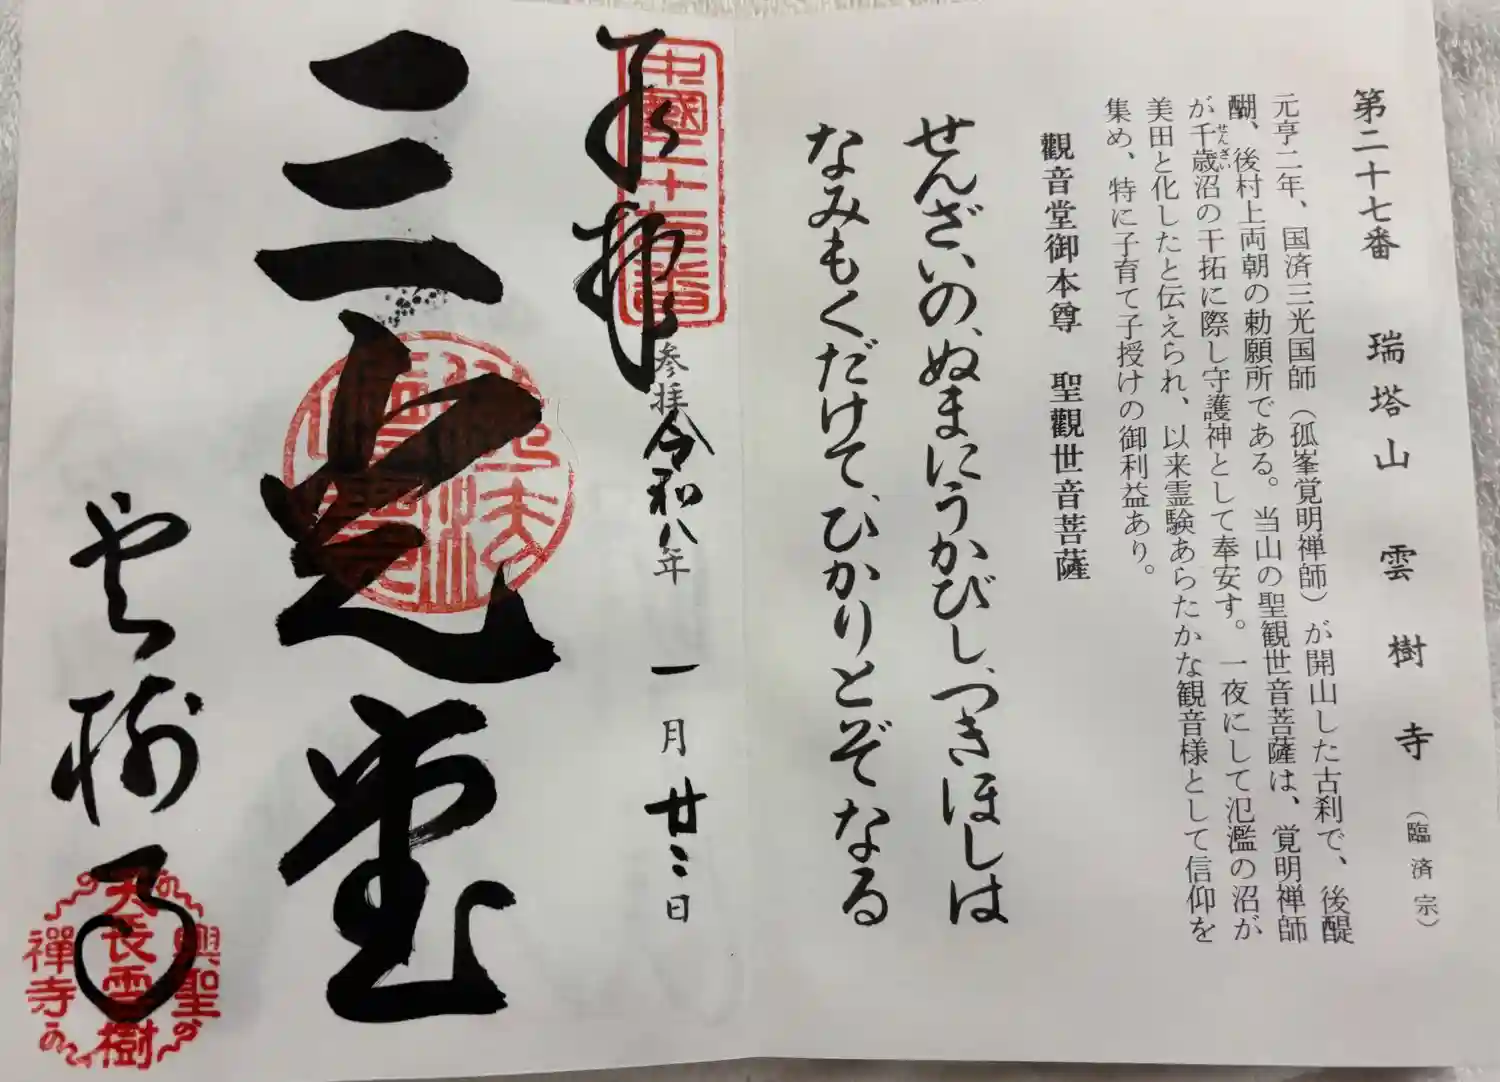 第二十七番 瑞塔山 雲樹寺(臨済宗)
元亨二年、国済三光国師(孤峯覚明禅師)が開山した古刹で、後醍
醐、後村上両朝の勅願所である。当山の聖観世音菩薩は、覚明禅師
が千歳沼の干拓に際し守護神として奉安す。一夜にして氾濫の沼が
せんざい
美田と化したと伝えられ、以来霊験あらたかな観音様として信仰を
集め、特に子育て子授けの御利益あり。
觀音堂御本尊 聖觀世音菩薩
せんざいの、ぬまにうかびし、つきほしは
なみもくだけて、ひかりとぞなる
中國二十七番
奉拝
参拝令和八年一月廿二日
三光堂
雲樹寺
天長雲樹
興聖
禪寺